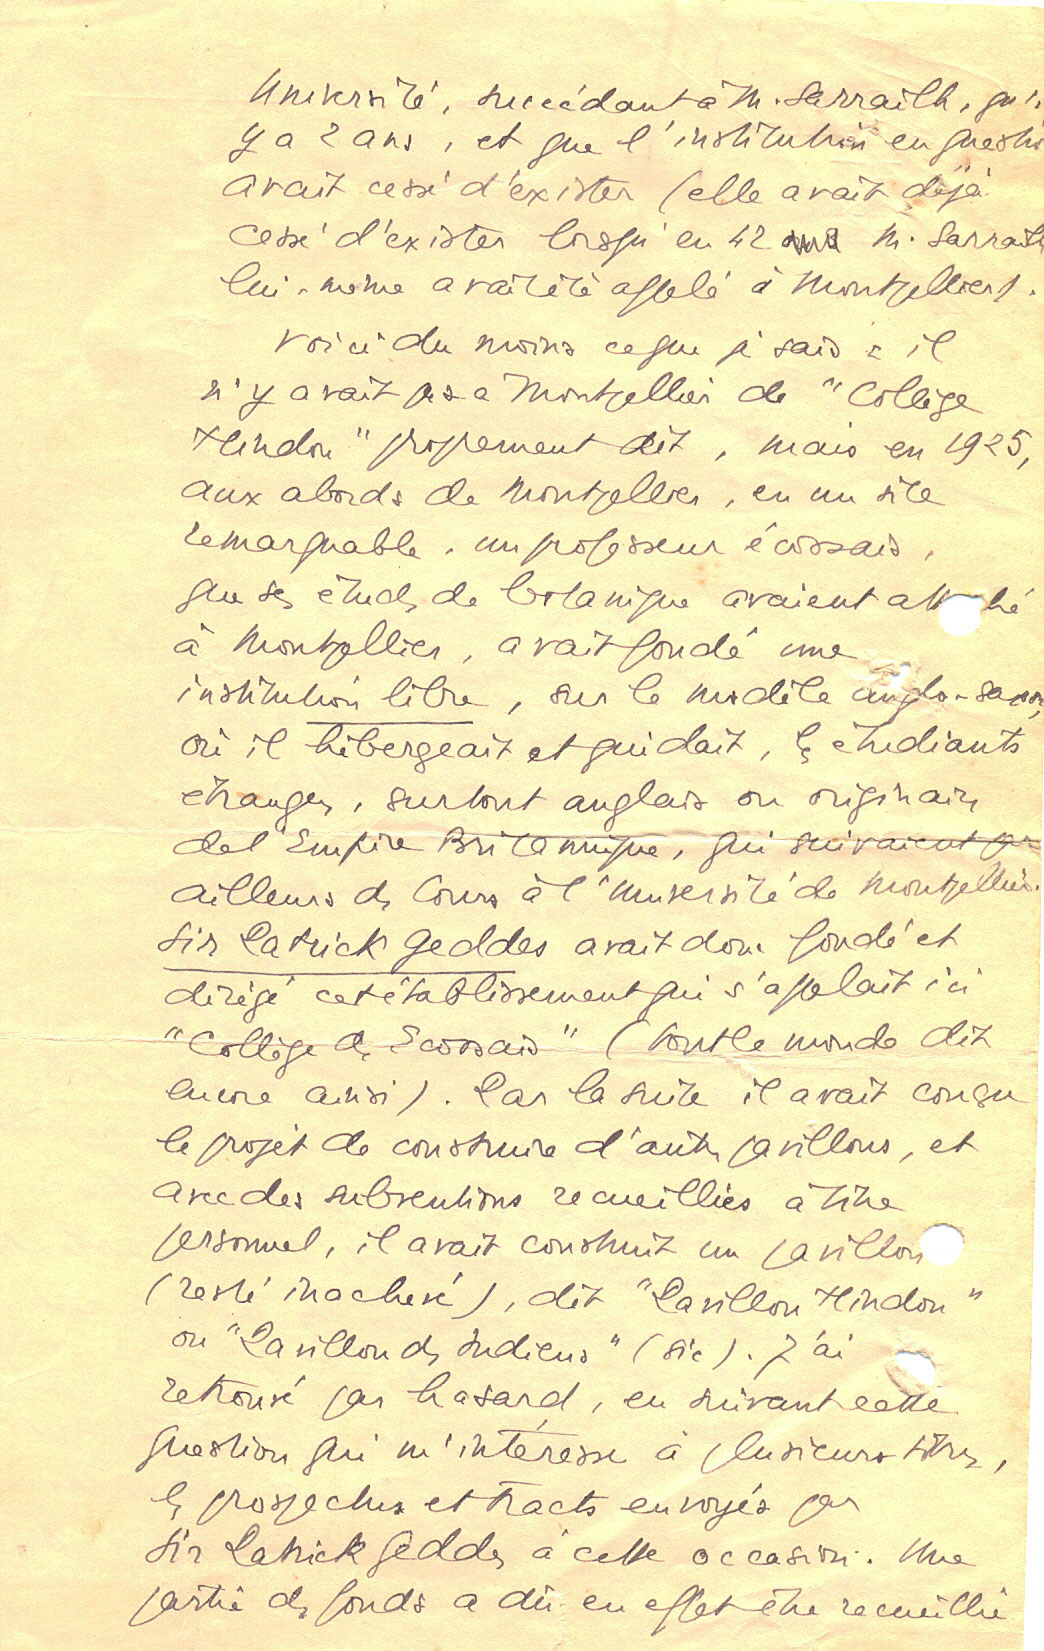 Université, succédant à M. Sarrailh, qu'il
y a 2 ans, et que l'institution en question
avait cessé d'exister (elle avait déjà
cessé d'exister lorsqu'en 42 M. Sarrailh
lui-même avait été appelé à Montpellier).
Voici du moins ce que je sais : il
n'y avait pas à Montpellier de "Collège
Hindou" proprement dit, mais en 1925,
aux abords de Montpellier, en un site
remarquable, un professeur écossais,
que ses études de botanique avaient attaché
à Montpellier, avait fondé une
institution libre, sur le modèle anglo-saxon,
où il hébergeait et guidait, les étudiants
étrangers, surtout anglais ou originaires
de l'Empire Britannique, qui suivaient par
ailleurs des Cours à l'Université de Montpellier.
Sir Patrick Geddes avait donc fondé et
dirigé cet établissement qui s'appelait ici
"Collège des Ecossais" (tout le monde dit
encore ainsi). Par la suite il avait conçu
le projet de construire d'autres pavillons, et
avec des subventions recueillies à titre
personnel, il avait construit un pavillon
(resté inachevé), dit "Pavillon Hindou"
ou "Pavillon des Indiens" (sic). J'ai
retrouvé par hasard, en suivant cette
question qui m'intéresse à plusieurs titres,
les prospectus et tracts envoyés par
Sir Patrick Geddes à cette occasion. Une
partie des fonds a dû en effet être recueillie